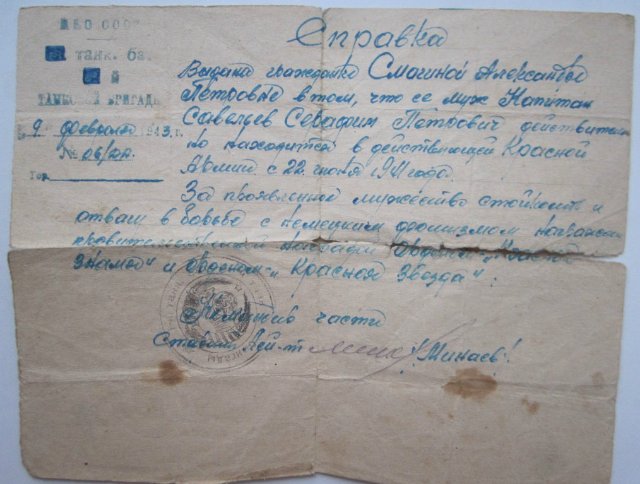 НКО СССР
танк. ба
й
ТАНКОВОЙ БРИГАДЫ
9 февраля 1943 г.
№ 06/
Гор.
Справка
Выдана гражданке Смагиной Александре
Петровне в том, что ее муж Капитан
Савельев Серафим Петрович действитель
но находится в действующей Красной
Армии с 22 июня 1941 года.
За проявленное мужество стойкость и
отвагу в борьбе с немецким фашизмом награжден
правительственной наградой Орденом „Красное
Знамя" и Орденом „Красная Звезда".
части
Старший Лей-т /Минаев/